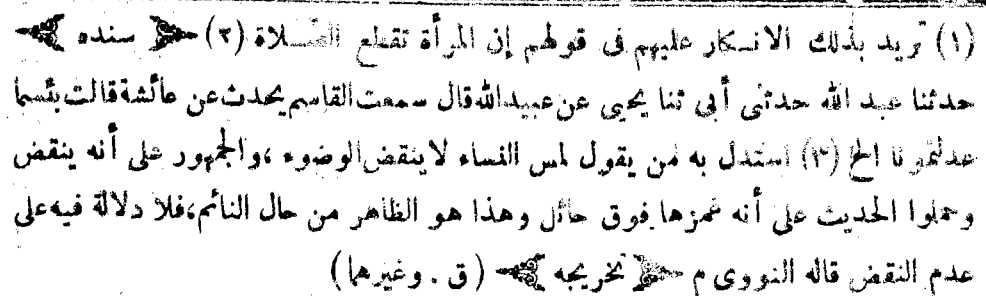 (١) تريد بذلك الانكار عليهم فى قولهم إن المرأة تقطع الصلاة (٢) سنده
حدثنا عبد الله حدثنى أبى ثنا يحيى عن عبيد الله قال سمعت القاسم يحدث عن عائشة قالت بئسما
عدلتمونا الخ (٣) استدل به من يقول لمس النساء لا ينقض الوضوء ،والجمهور على أنه ينقض
وحملوا الحديث على أنه غمزها فوق حائل وهذا هو الظاهر من حال النائم،فلا دلالة فيه على
عدم النقض قاله النووى م تخريجه (ق . وغيرهما)